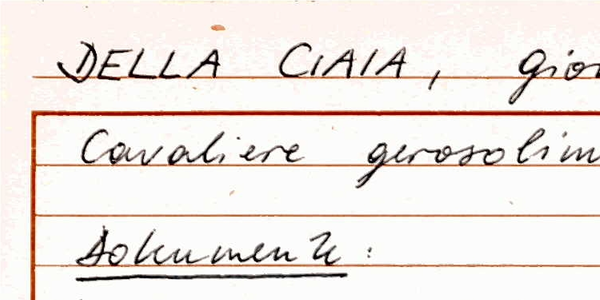 DELLA CIAIA, gior
Cavaliere gerosolim
Dokumente: